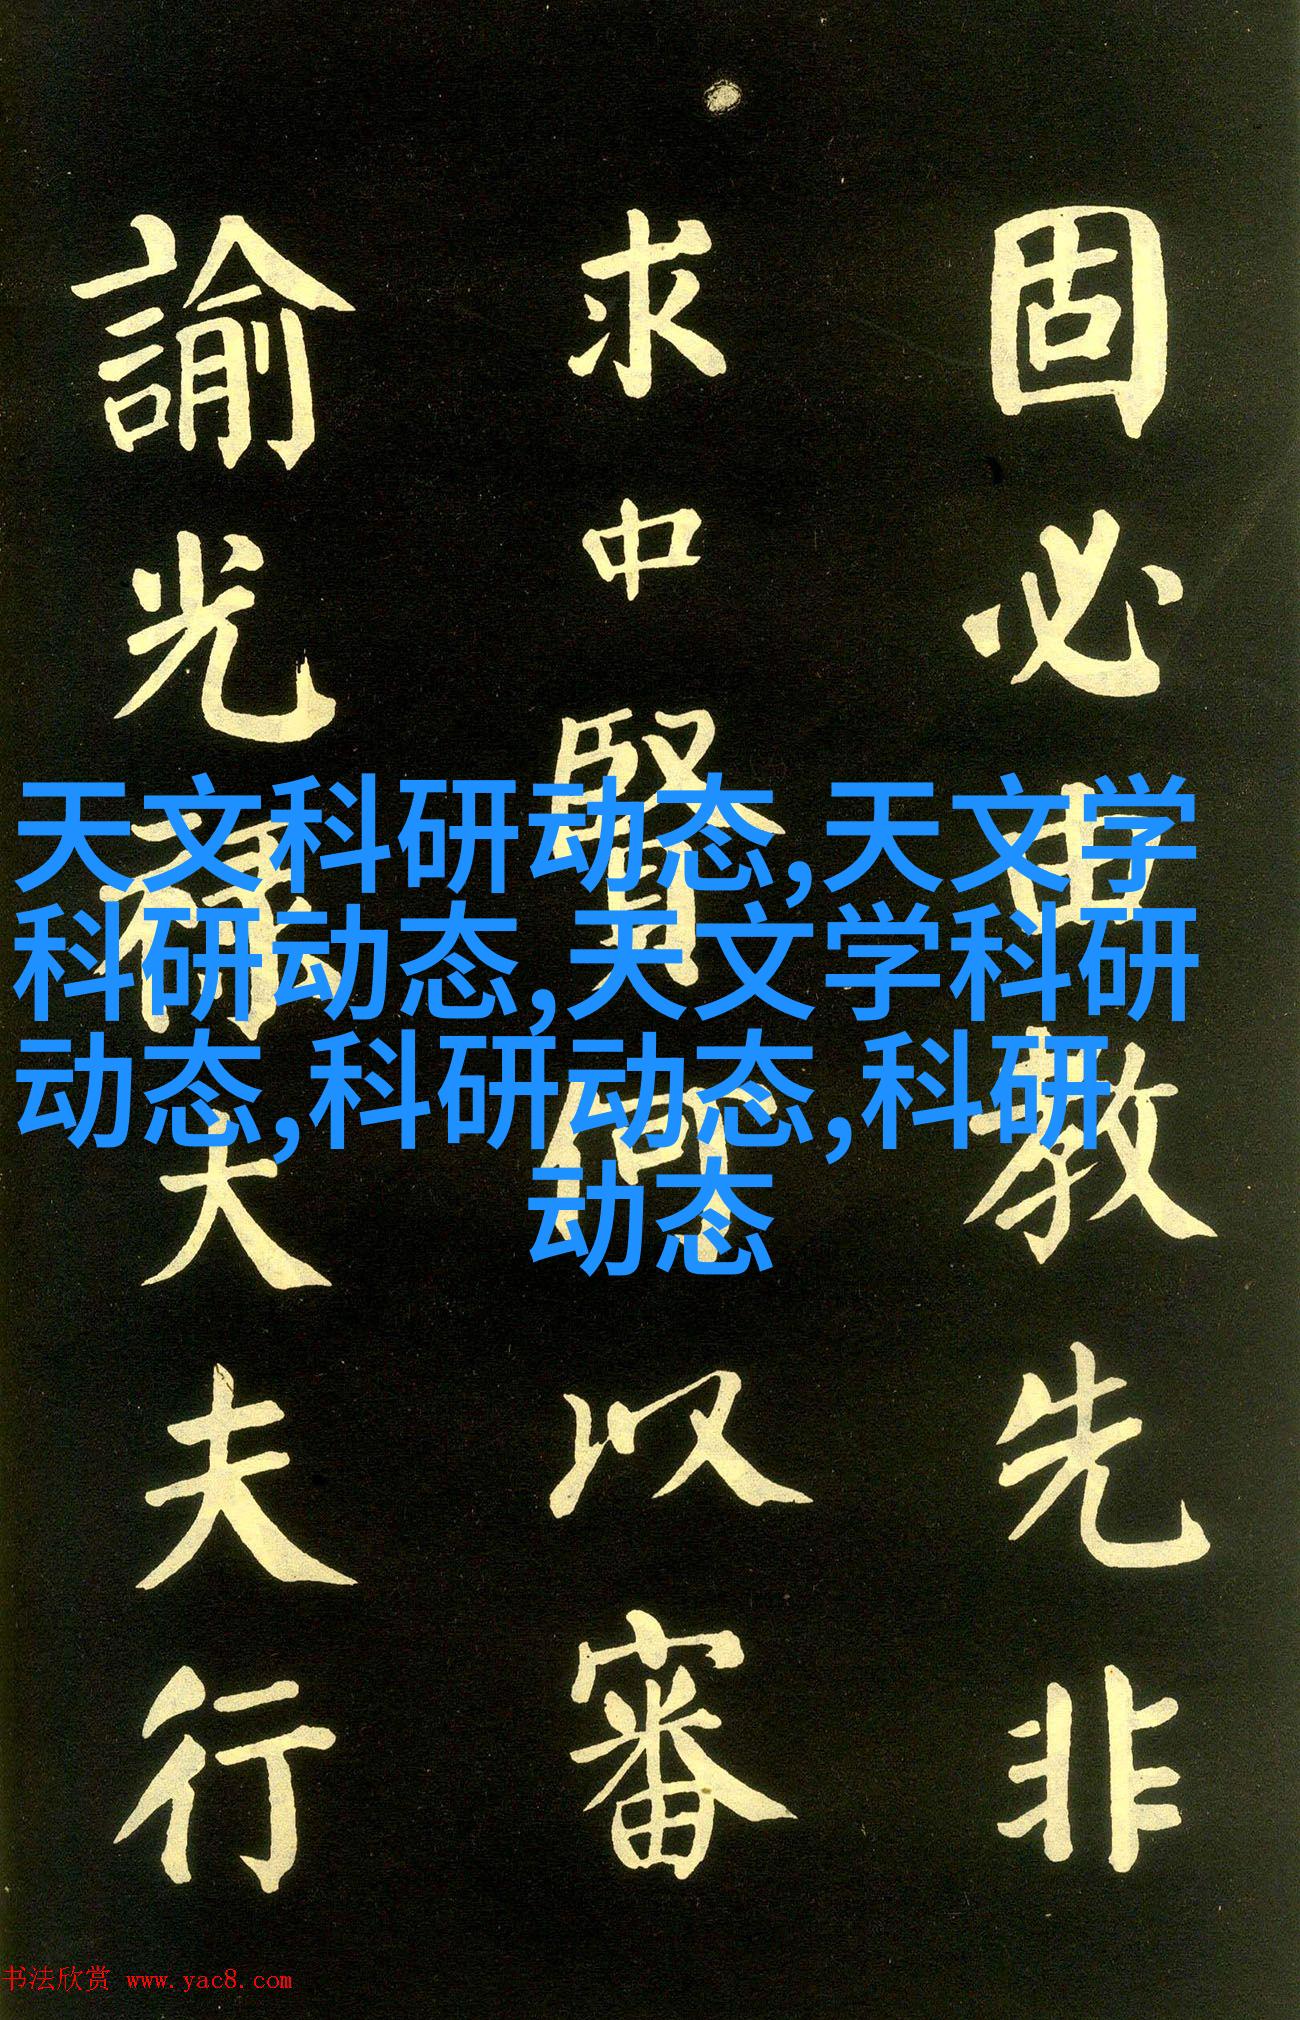 固必由教先非
求中賢何以審
諭光祿大夫行
天文科研动态,天文学
科研动态,天文学科研
动态,科研动态,科研
动态
书法欣赏 www.yac8.com